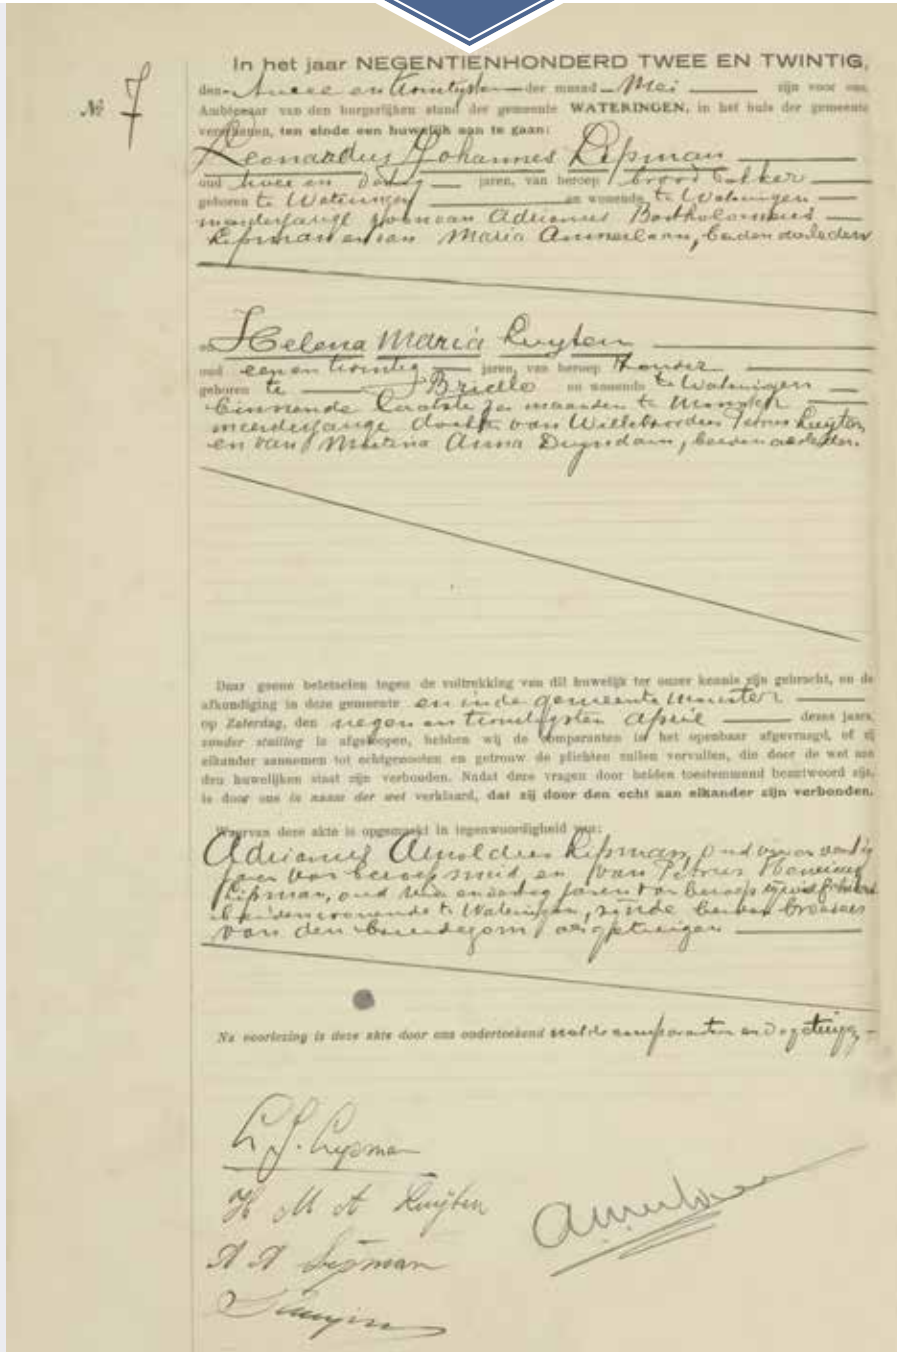 In het jaar NEGENTIENHONDERD TWEE EN TWINTIG,
Nº 7
den twee en twintigsten der maand Mei zijn voor ons,
Ambtenaar van den burgerlijken stand der gemeente WATERINGEN, in het huis der gemeente
verschenen, ten einde een huwelijk aan te gaan:
Leonardus Johannes Lipman
oud twee en dertig jaren, van beroep broodbakker
geboren te Wateringen en wonende te Wateringen
meerderjarige zoon van Adrianus Bartholomeus
Lipman en van Maria Ammerlaan, beiden overleden
en Helena Maria Luyten
oud een en twintig jaren, van beroep zonder
geboren te en wonende te Wateringen
binnen de laatste zes maanden te Monster
meerderjarige dochter van Willebrordus Petrus Luyten
en van Anna Duyndam, beiden overleden.
Daar geene beletselen tegen de voltrekking van dit huwelijk ter onzer kennis zijn gebracht, en de
afkondiging in deze gemeente en in de gemeente Monster
op Zaterdag, den negen en twintigsten April dezes jaars,
zonder stuiting is afgeloopen, hebben wij de comparanten in het openbaar afgevraagd, of zij
elkander aannemen tot echtgenooten en getrouw de plichten zullen vervullen, die door de wet aan
den huwelijken staat zijn verbonden. Nadat deze vragen door beiden toestemmend beantwoord zijn,
is door ons in naam der wet verklaard, dat zij door den echt aan elkander zijn verbonden.
Waarvan deze akte is opgemaakt in tegenwoordigheid van:
Adrianus Arnoldus Lipman, oud veertig
jaren van beroep smid, en van Petrus Henricus
Lipman, oud en dertig jaren van beroep
beiden wonende te Wateringen, zijnde beiden broeders
van den bruidegom als getuigen
Na voorlezing is deze akte door ons onderteekend met de comparanten en de getuigen
L J. Lipman
H M A Luijten
A A Lipman